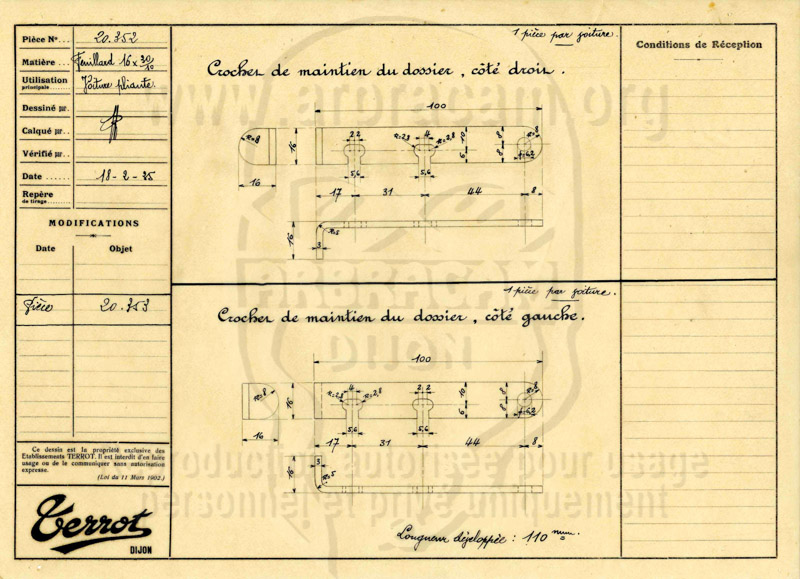 Pièce No... 20.352
Matière... Feuillard 16 x 30/10
Utilisation principale... Voiture pliante.
Dessiné par.
Calqué par..
Vérifié par..
Date ...... 18-2-35
Repère de tirage......
MODIFICATIONS
Date Objet
Pièce 20.353
Ce dessin est la propriété exclusive des
Etablissements TERROT. Il est interdit d'en faire
usage ou de le communiquer sans autorisation
expresse.
(Loi du 11 Mars 1902.)
Terrot
DIJON
1 pièce par voiture.
Crochet de maintien du dossier, côté droit.
100
R=8
16
16
2,2
R=2,8
4
R=2,8
10
6
8
8
R=8
6,2
5,6
5,6
17 31 44 8
16
R=5
3
1 pièce par voiture.
Crochet de maintien du dossier, côté gauche.
100
R=8
16
16
R=2,8
4
R=2,8
2,2
10
6
8
8
R=8
6,2
5,6
5,6
17 31 44 8
16
3
R=5
Longueur développée : 110 mm.
Conditions de Réception
www.arbracam.org
ARBRACAM
DIJON
Reproduction autorisée pour usage
personnel et privé uniquement